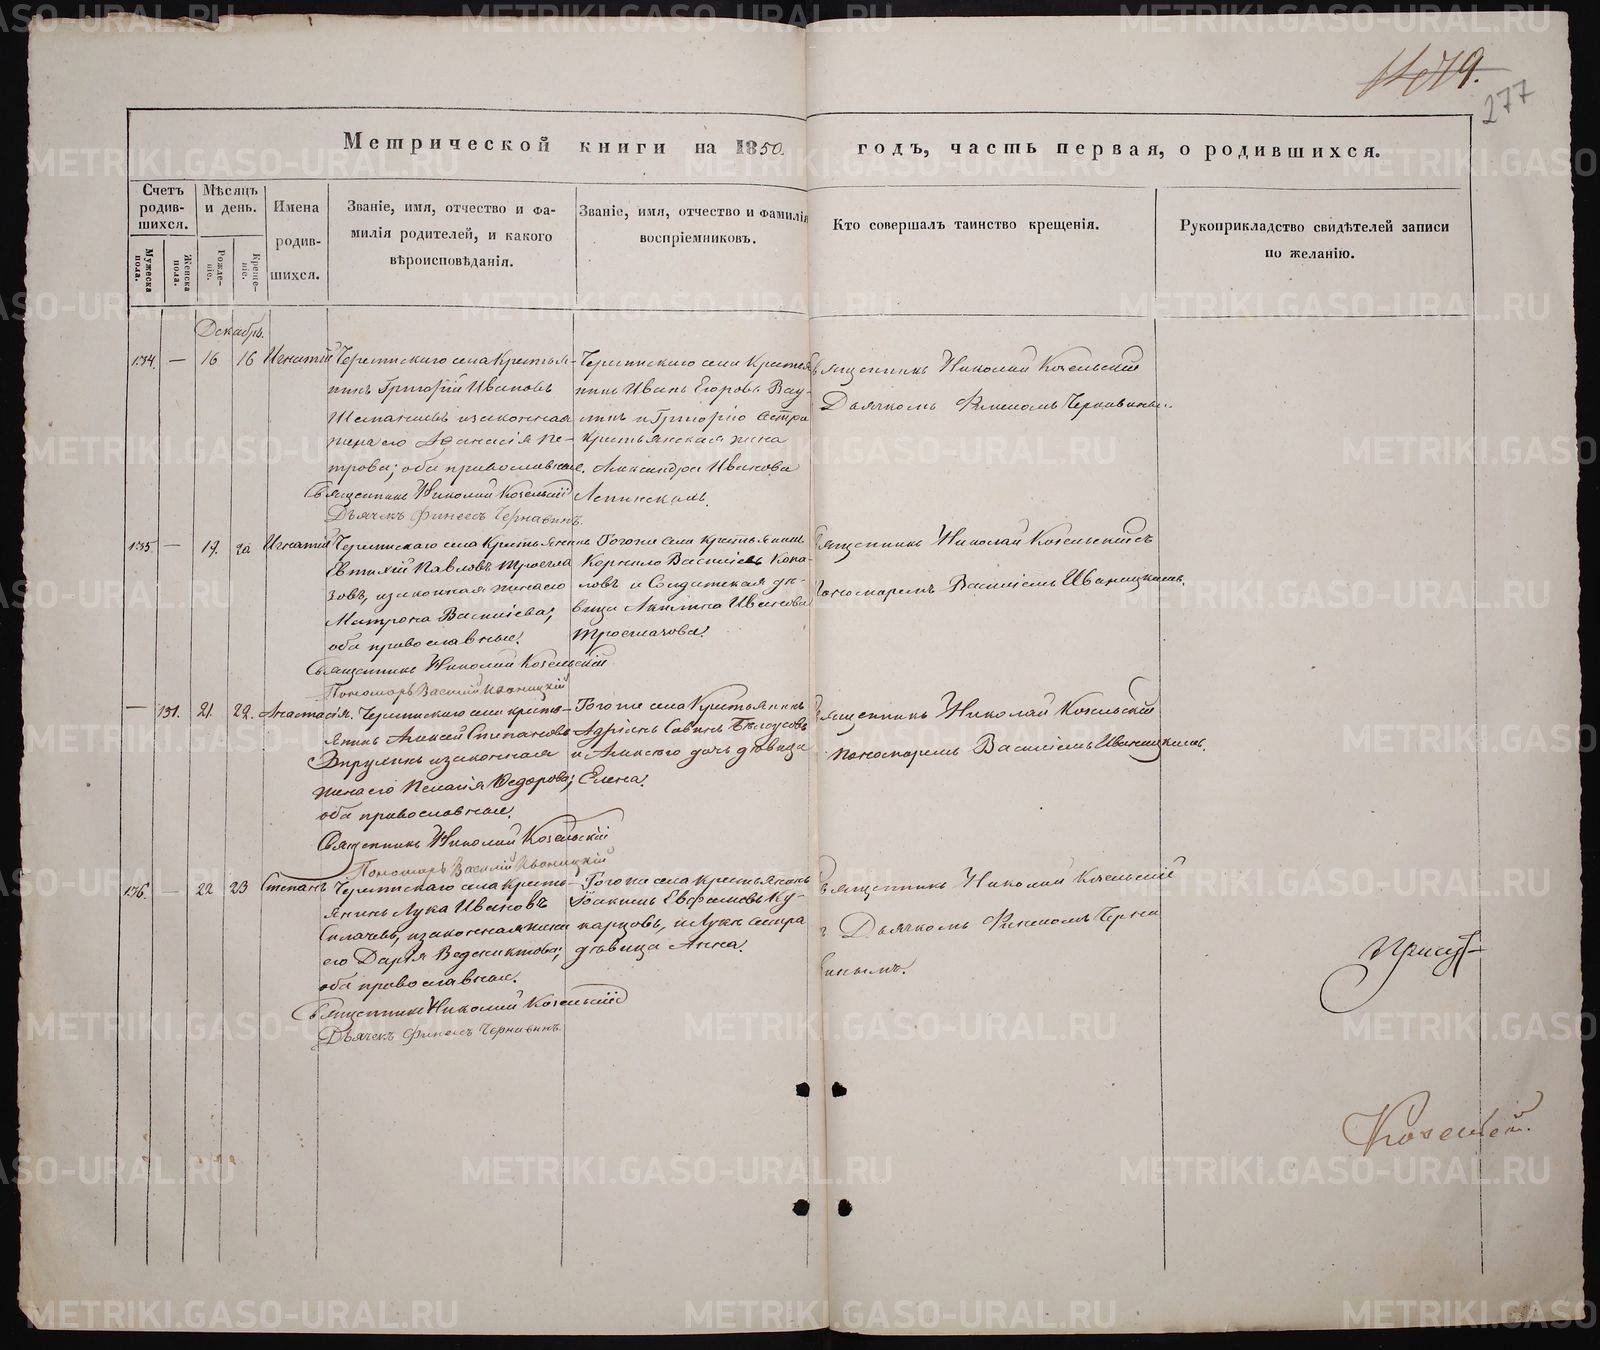 1479.
277
Метрической книги на 1850. годъ, часть первая, о родившихся.
Счетъ родив-шихся.
Мужеска пола.
Женска пола.
Мѣсяцъ и день.
Рожде-ніе.
Креще-ніе.
Имена родив-шихся.
Званіе, имя, отчество и фа-
милія родителей, и какого
вѣроисповѣданія.
Званіе, имя, отчество и фамилія
воспріемниковъ.
Кто совершалъ таинство крещенія.
Рукоприкладство свидѣтелей записи
по желанію.
Декабрь.
134. — 16 16 Игнатій
села Крестья-
нинъ Григорій Ивановъ
и законная
жена его Афанасія Пе-
трова; оба православные.
Священникъ Николай Козельскій
Дьячекъ Финеесъ Чернавинъ.
села Крестья
нинъ Иванъ Егоровъ Вау-
линъ и Григорію сестра
крестьянская жена
Александра Иванова
Священникъ Николай Козельскій
Дьячкомъ Финеесомъ Чернавинымъ.
135. — 17. 20 Игнатій
села Крестьянинъ
Евтихій Павловъ
зовъ, и законная жена его
Матрона Васильева;
оба православные.
Священникъ Николай Козельскій
Пономарь Василій Иваницкій
Того же села крестьянинъ
Корнило Васильевъ Коно-
ловъ и Солдатская дѣ-
вица Акилина Иванова
Священникъ Николай Козельскій съ
Пономаремъ Василіемъ Иваницкимъ.
— 131. 21. 22. Анастасія.
села кресть-
янинъ Алексей Степановъ
и законная
жена его Пелагія Федорова;
оба православные.
Священникъ Николай Козельскій
Пономарь Василій Иваницкій
Того же села Крестьянинъ
Адріанъ Савинъ Бѣлоусовъ
и Алексѣю дочь дѣвица
Елена.
Священникъ Николай Козельскій
Пономаремъ Василіемъ Иваницкимъ.
136. — 22 23 Степанъ
села Кресть-
янинъ Лука Ивановъ
Силачевъ, и законная жена
его Дарья Ведениктова;
оба православные.
Священникъ Николай Козельскій
Дьячекъ Финеесъ Чернавинъ
Того же села крестьянинъ
Іоакимъ Евфимовъ Ку-
карцовъ, и Луки сестра
дѣвица Анна.
Священникъ Николай Козельскій
съ Дьячкомъ Финеесомъ Черна
винымъ.